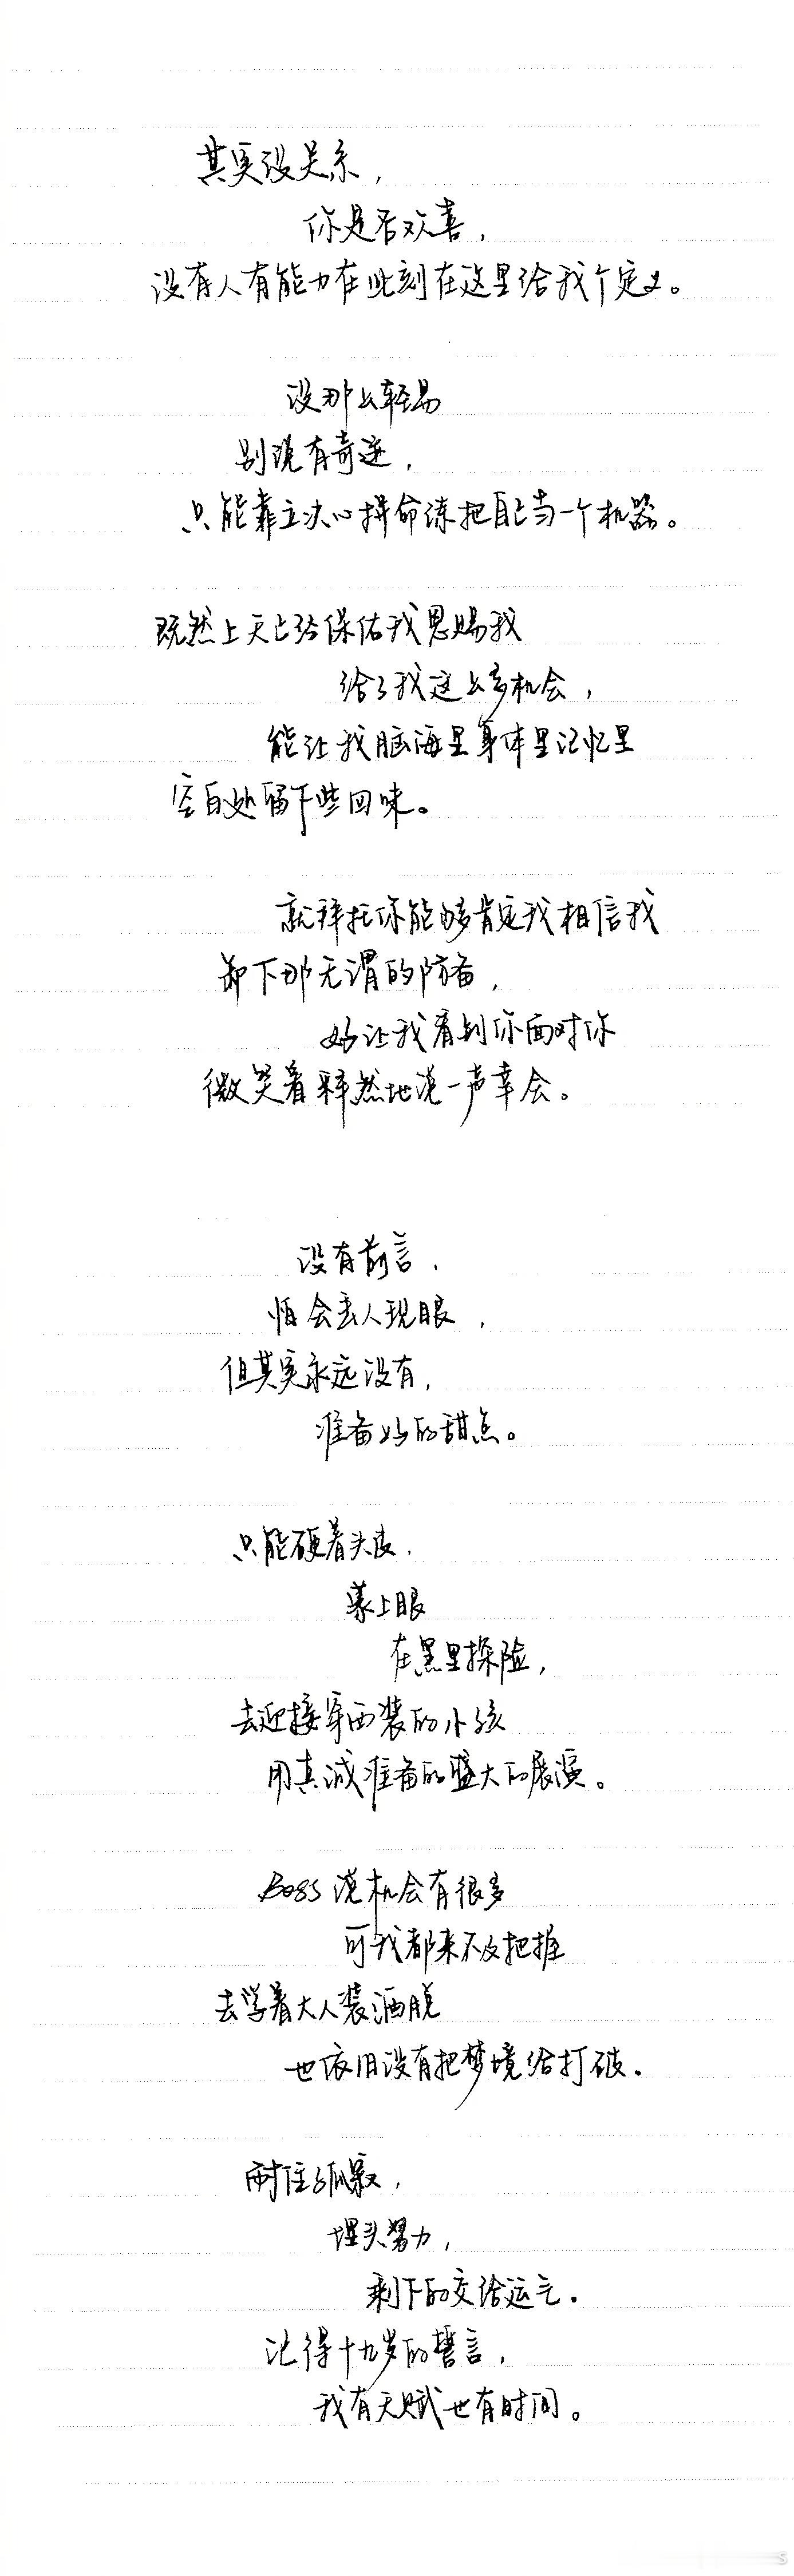 其实没关系，
你是否欢喜，
没有人有能力在此刻在这里给我个定义。
没那么轻易
别说有奇迹，
只能靠立决心拼命练把自己当一个机器。
既然上天已经保佑我恩赐我
给了我这么多机会，
能让我脑海里身体里记忆里
空白处留下些回味。
就拜托你能够肯定我相信我
卸下那无谓的防备，
好让我看到你面对你
微笑着释然地说一声幸会。
没有前言，
怕会丢人现眼，
但其实永远没有，
准备好的甜点。
只能硬着头皮，
蒙上眼
在黑里探险，
去迎接穿西装的小孩
用真诚准备的盛大的展演。
Boss说机会有很多
可我都来不及把握
去学着大人装洒脱
也依旧没有把梦境给打破.
耐住了孤寂，
埋头努力，
剩下的交给运气.
记得十九岁的誓言，
我有天赋也有时间。